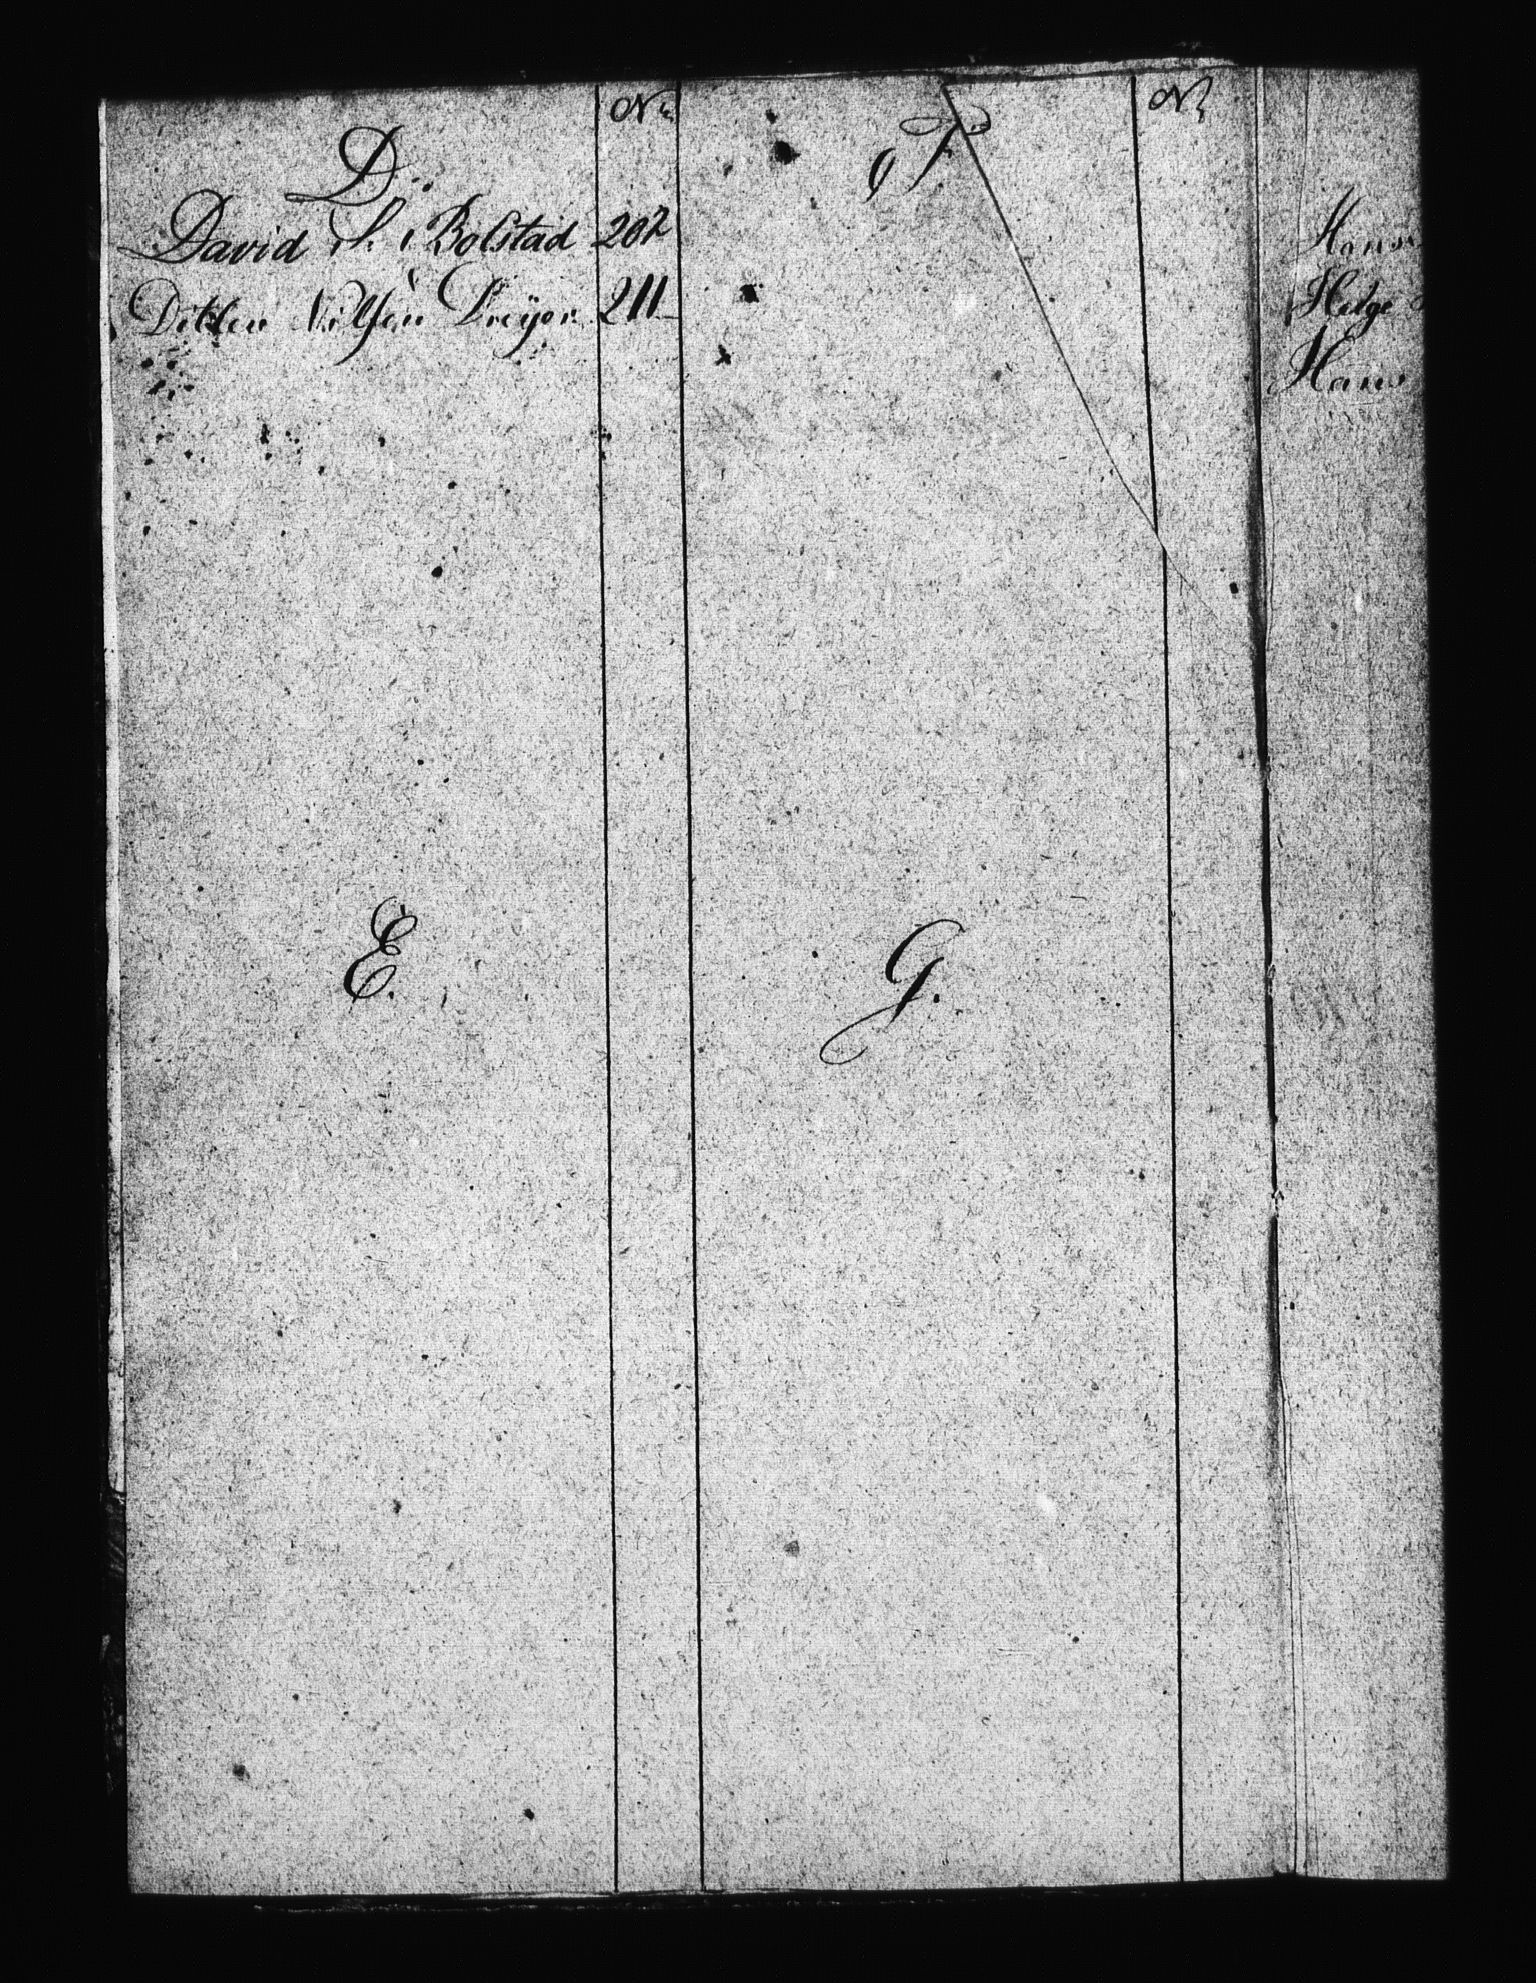 No
D.
David S. Bolstad 202
Ditlev Nilsen Dreyer 211
E.
No
F
G.
Hans
Helge
Hans